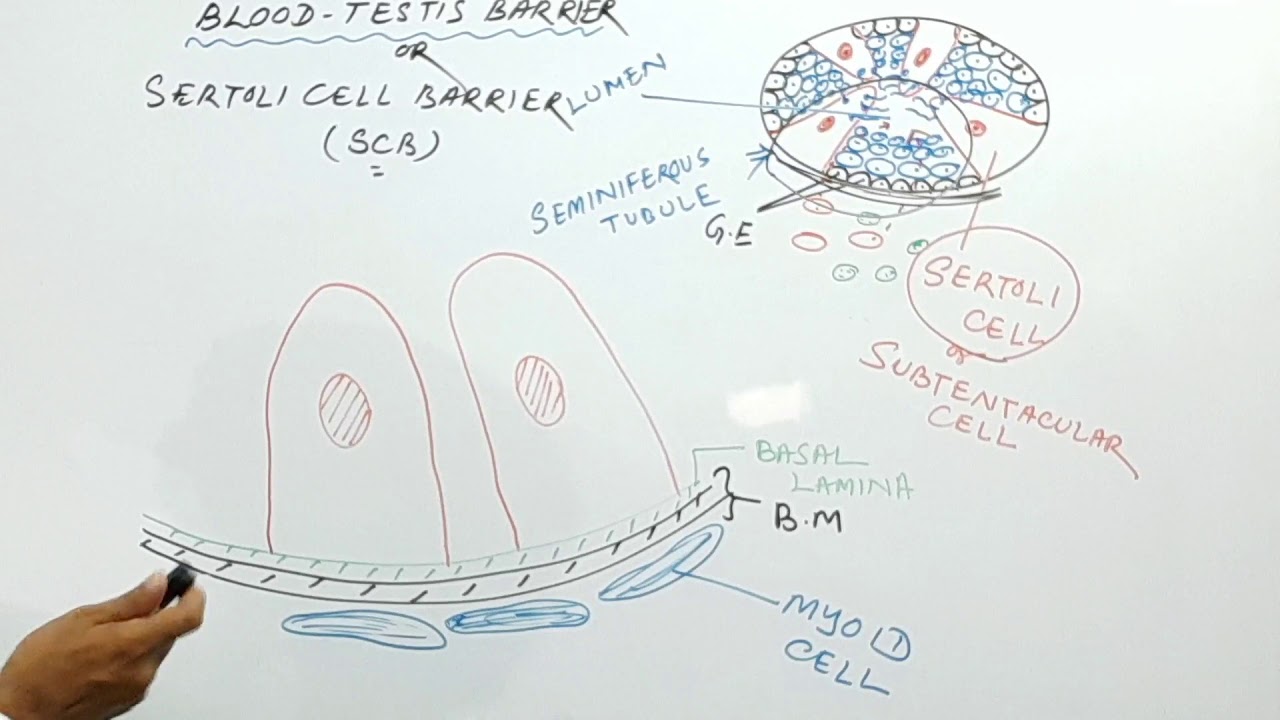 BLOOD-TESTIS BARRIER
OR
SERTOLI CELL BARRIER
(SCB)
LUMEN
SEMINIFEROUS
TUBULE
G.E
SERTOLI
CELL
or
SUBTENTACULAR
CELL
BASAL
LAMINA
B.M
MYOID
CELL